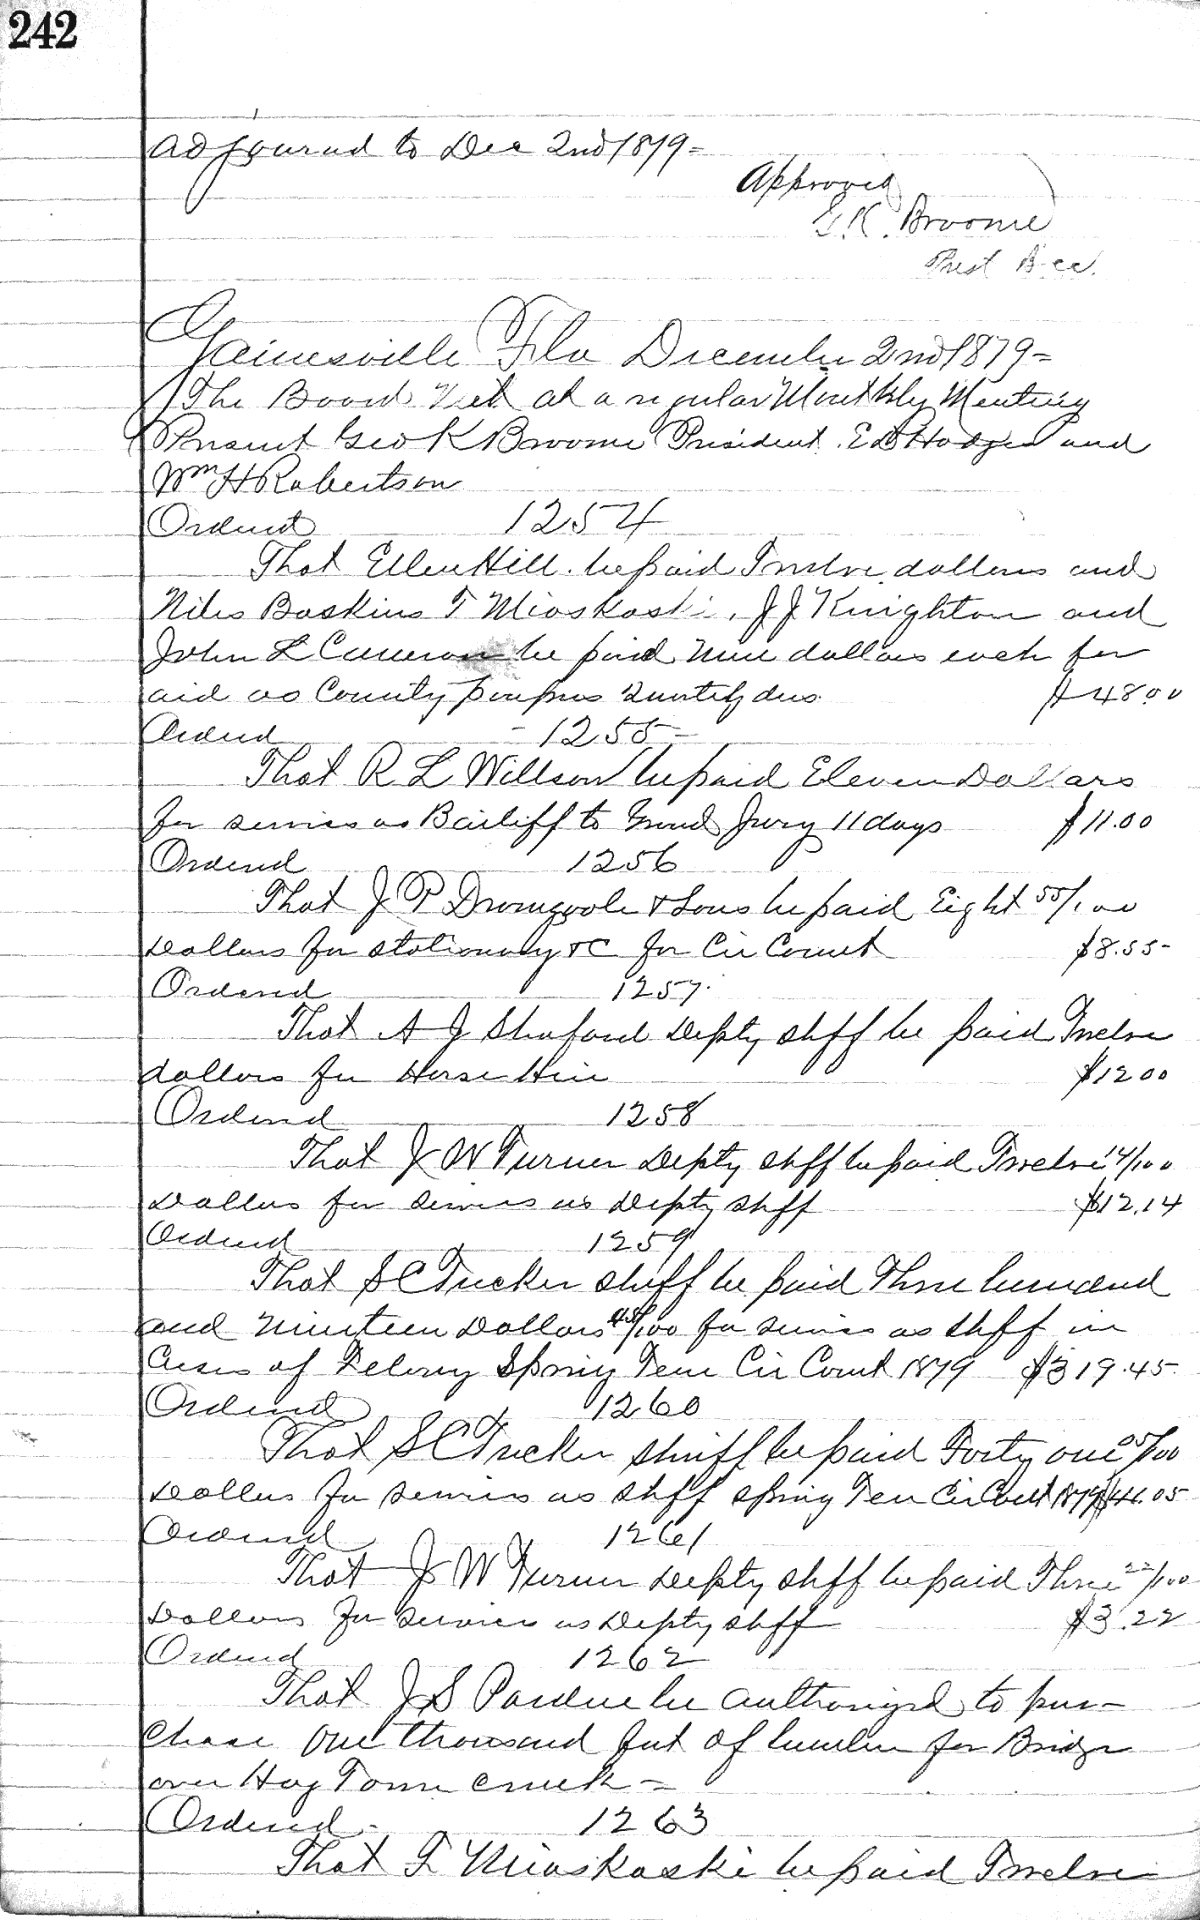 242
Adjourned to Dec 2nd 1879 =
Approved
G. K. Broome
Prest B.cc.
Gainesville Fla December 2nd 1879 =
The Board Met at a regular Monthly Meeting
Present Geo K Broome President. E D Hodges and
Wm H Robertson
Ordered 1254
That Ellen Hill be paid Twelve dollars and
Niles Baskins T Mioskoski, J J Knighton and
John L Cameron be paid Nine dollars each for
aid as County paupers quarterly dues. $48.00
Ordered - 1255 -
That R L Willson be paid Eleven Dollars
for services as Bailiff to Grand Jury 11 days $11.00
Ordered 1256
That J P Dromgoole & Sons be paid Eight 55/100
Dollars for stationary &C for Cir Court $8.55
Ordered 1257.
That A J Shuford Depty shff be paid Twelve
dollars for Horse Hire $12.00
Ordered 1258
That J W Turner Depty shff be paid Twelve 14/100
Dollars for services as Depty shff $12.14
Ordered 1259
That S C Tucker shff be paid Three hundred
and Nineteen Dollars 45/100 for services as Shff in
Cases of Felony Spring Term Cir Court 1879 $319.45
Ordered 1260
That S C Tucker Shriff be paid Forty one 05/100
Dollars for services as shff spring Term Cir Court 1879 $41.05
Ordered 1261
That J W Turner Depty shff be paid Three 22/100
Dollars for services as Depty shff $3.22
Ordered 1262
That J S Pardue be authorized to pur-
chase one thousand feet of lumber for Bridge
over Hog Town Creek =
Ordered. 1263
That T Mioskoski be paid Twelve